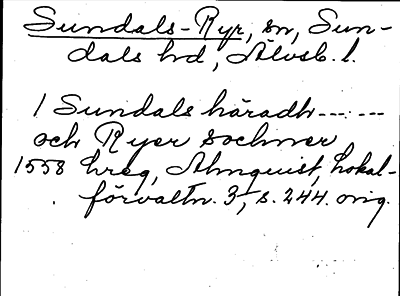 Sundals-Ryr, sn, Sun-
dals hd, Älvsb. l.
I Sundals häradh ... ---
och Ryer sochner
1558 hreg, Almquist, Lokal-
förvaltn. 3, s. 244. orig.